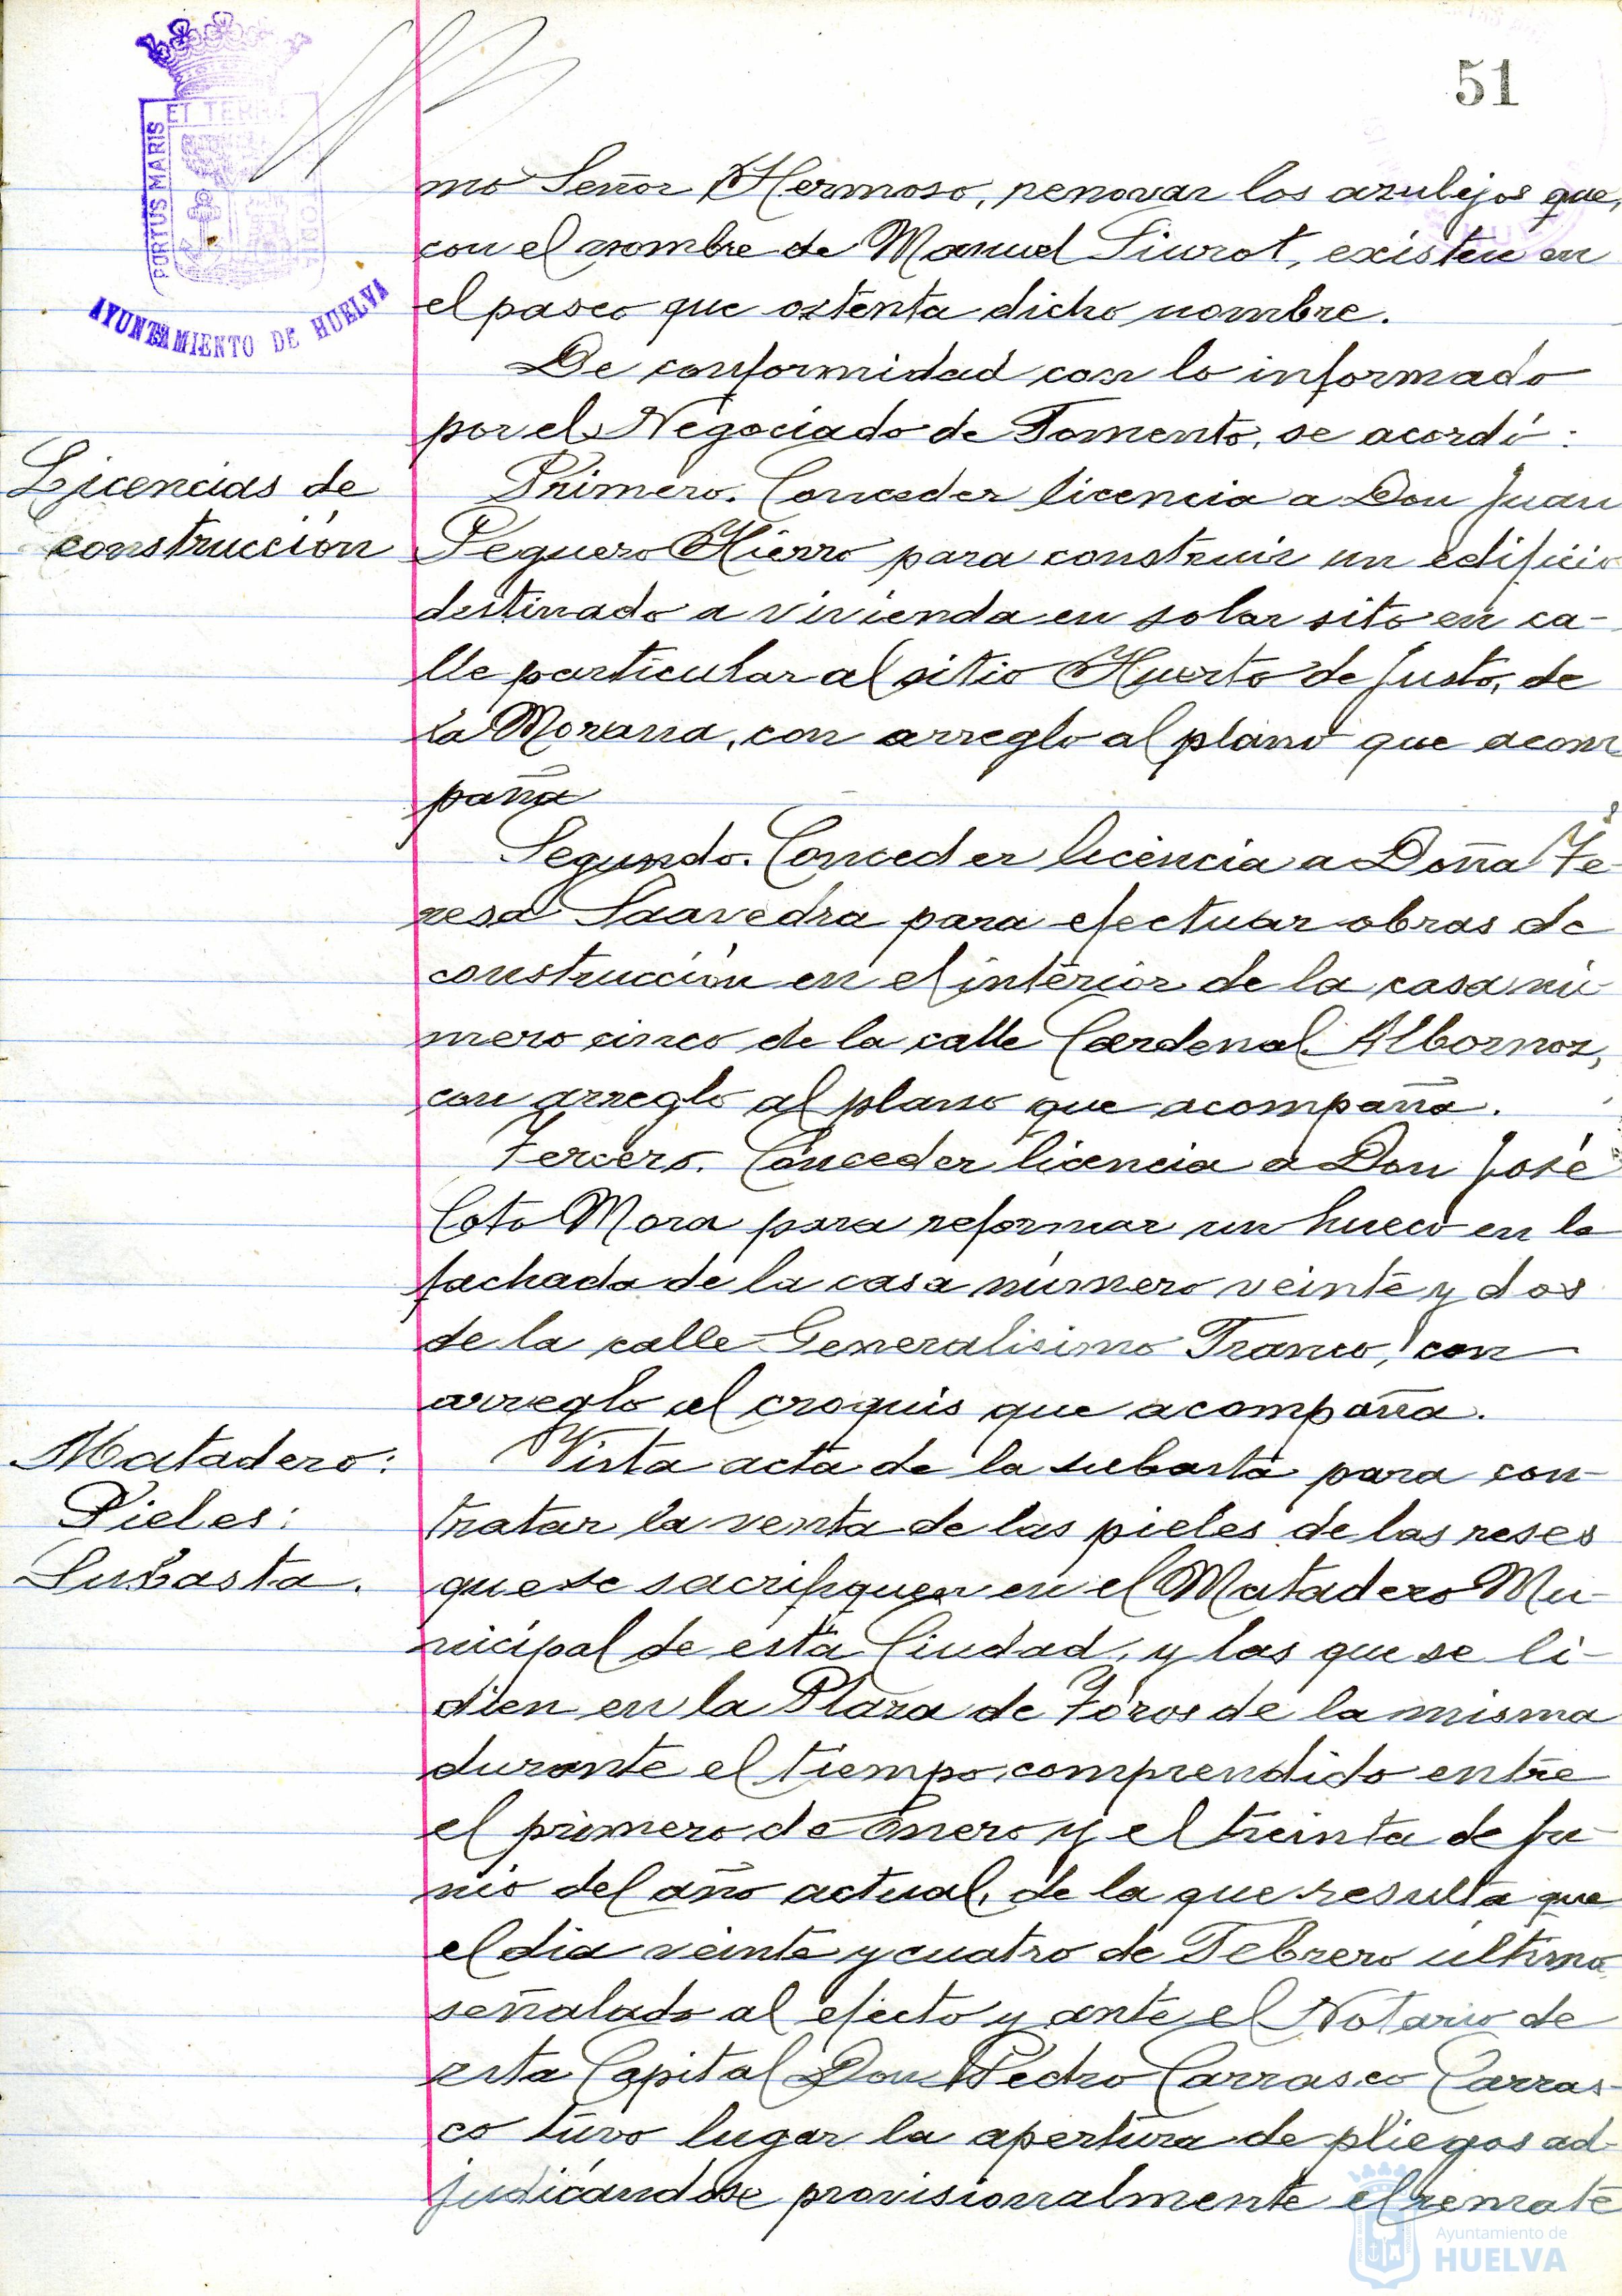 51
PORTUS MARIS
ET TERRE
AYUNTAMIENTO DE HUELVA
mo Señor Hermoso, renovar los azulejos que,
con el nombre de Manuel Siurot, existen en
el paseo que ostenta dicho nombre.
De conformidad con lo informado
por el Negociado de Fomento, se acordó:
Licencias de
construcción
Primero. Conceder licencia a Don Juan
Peguero Hierro para construir un edificio
destinado a vivienda en solar sito en ca-
lle particular al sitio Huerto de Justo, de
la Morana, con arreglo al plano que acom
paña
Segundo. Conceder licencia a Doña Te-
resa Saavedra para efectuar obras de
construcción en el interior de la casa nú-
mero cinco de la calle Cardenal Albornoz,
con arreglo al plano que acompaña.
Tercero. Conceder licencia a Don José
Coto Mora para reformar un hueco en la
fachada de la casa número veinte y dos
de la calle Generalisimo Franco, con
arreglo al croquis que acompaña.
Matadero:
Pieles:
Subasta.
Vista acta de la subasta para con-
tratar la venta de las pieles de las reses
que se sacrifiquen en el Matadero Mu-
nicipal de esta Ciudad, y las que se li-
dien en la Plaza de Toros de la misma
durante el tiempo comprendido entre
el primero de Enero y el treinta de Ju-
nio del año actual, de la que resulta que
el dia veinte y cuatro de Febrero último
señalado al efecto y ante el Notario de
esta Capital Don Pedro Carrasco Carras-
co tuvo lugar la apertura de pliegos ad-
judicándose provisionalmente el remate
Ayuntamiento de
HUELVA